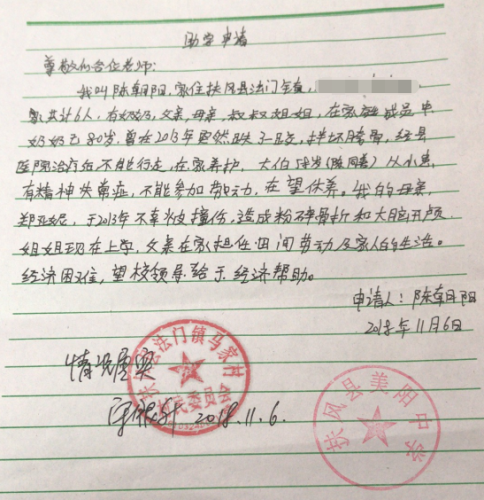 助学申请
尊敬的各位老师:
我叫陈朝阳,家住扶风县法门镇
家共计6人,有奶奶,父亲,母亲,叔叔姐姐,在家庭成员中
奶奶已80岁,曾在2013年突然跌了一跤,摔坏腰骨,经县
医院治疗后不能行走,在家养护,大伯 从小患
有精神失常症,不能参加劳动,在望休养。我的母亲,
郑 妮,于2013年不幸被撞伤,造成粉碎骨折和大脑开颅.
姐姐现在上学,父亲在家担任田间劳动及家人的生活。
经济困难,望校领导给于经济帮助。
申请人:陈朝阳
2018年11月6日
情况属实
2018.11.6.
扶风县法门镇马家村
村民委员会
扶风县美阳中学